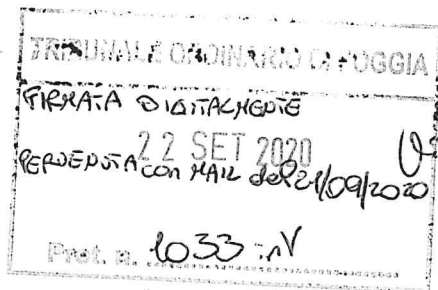 TRIBUNALE ORDINARIO DI FOGGIA
FIRMATA DIGITALMENTE
22 SET 2020
PERVENUTA CON MAIL del 21/09/2020
Prot. n. 1033 INV